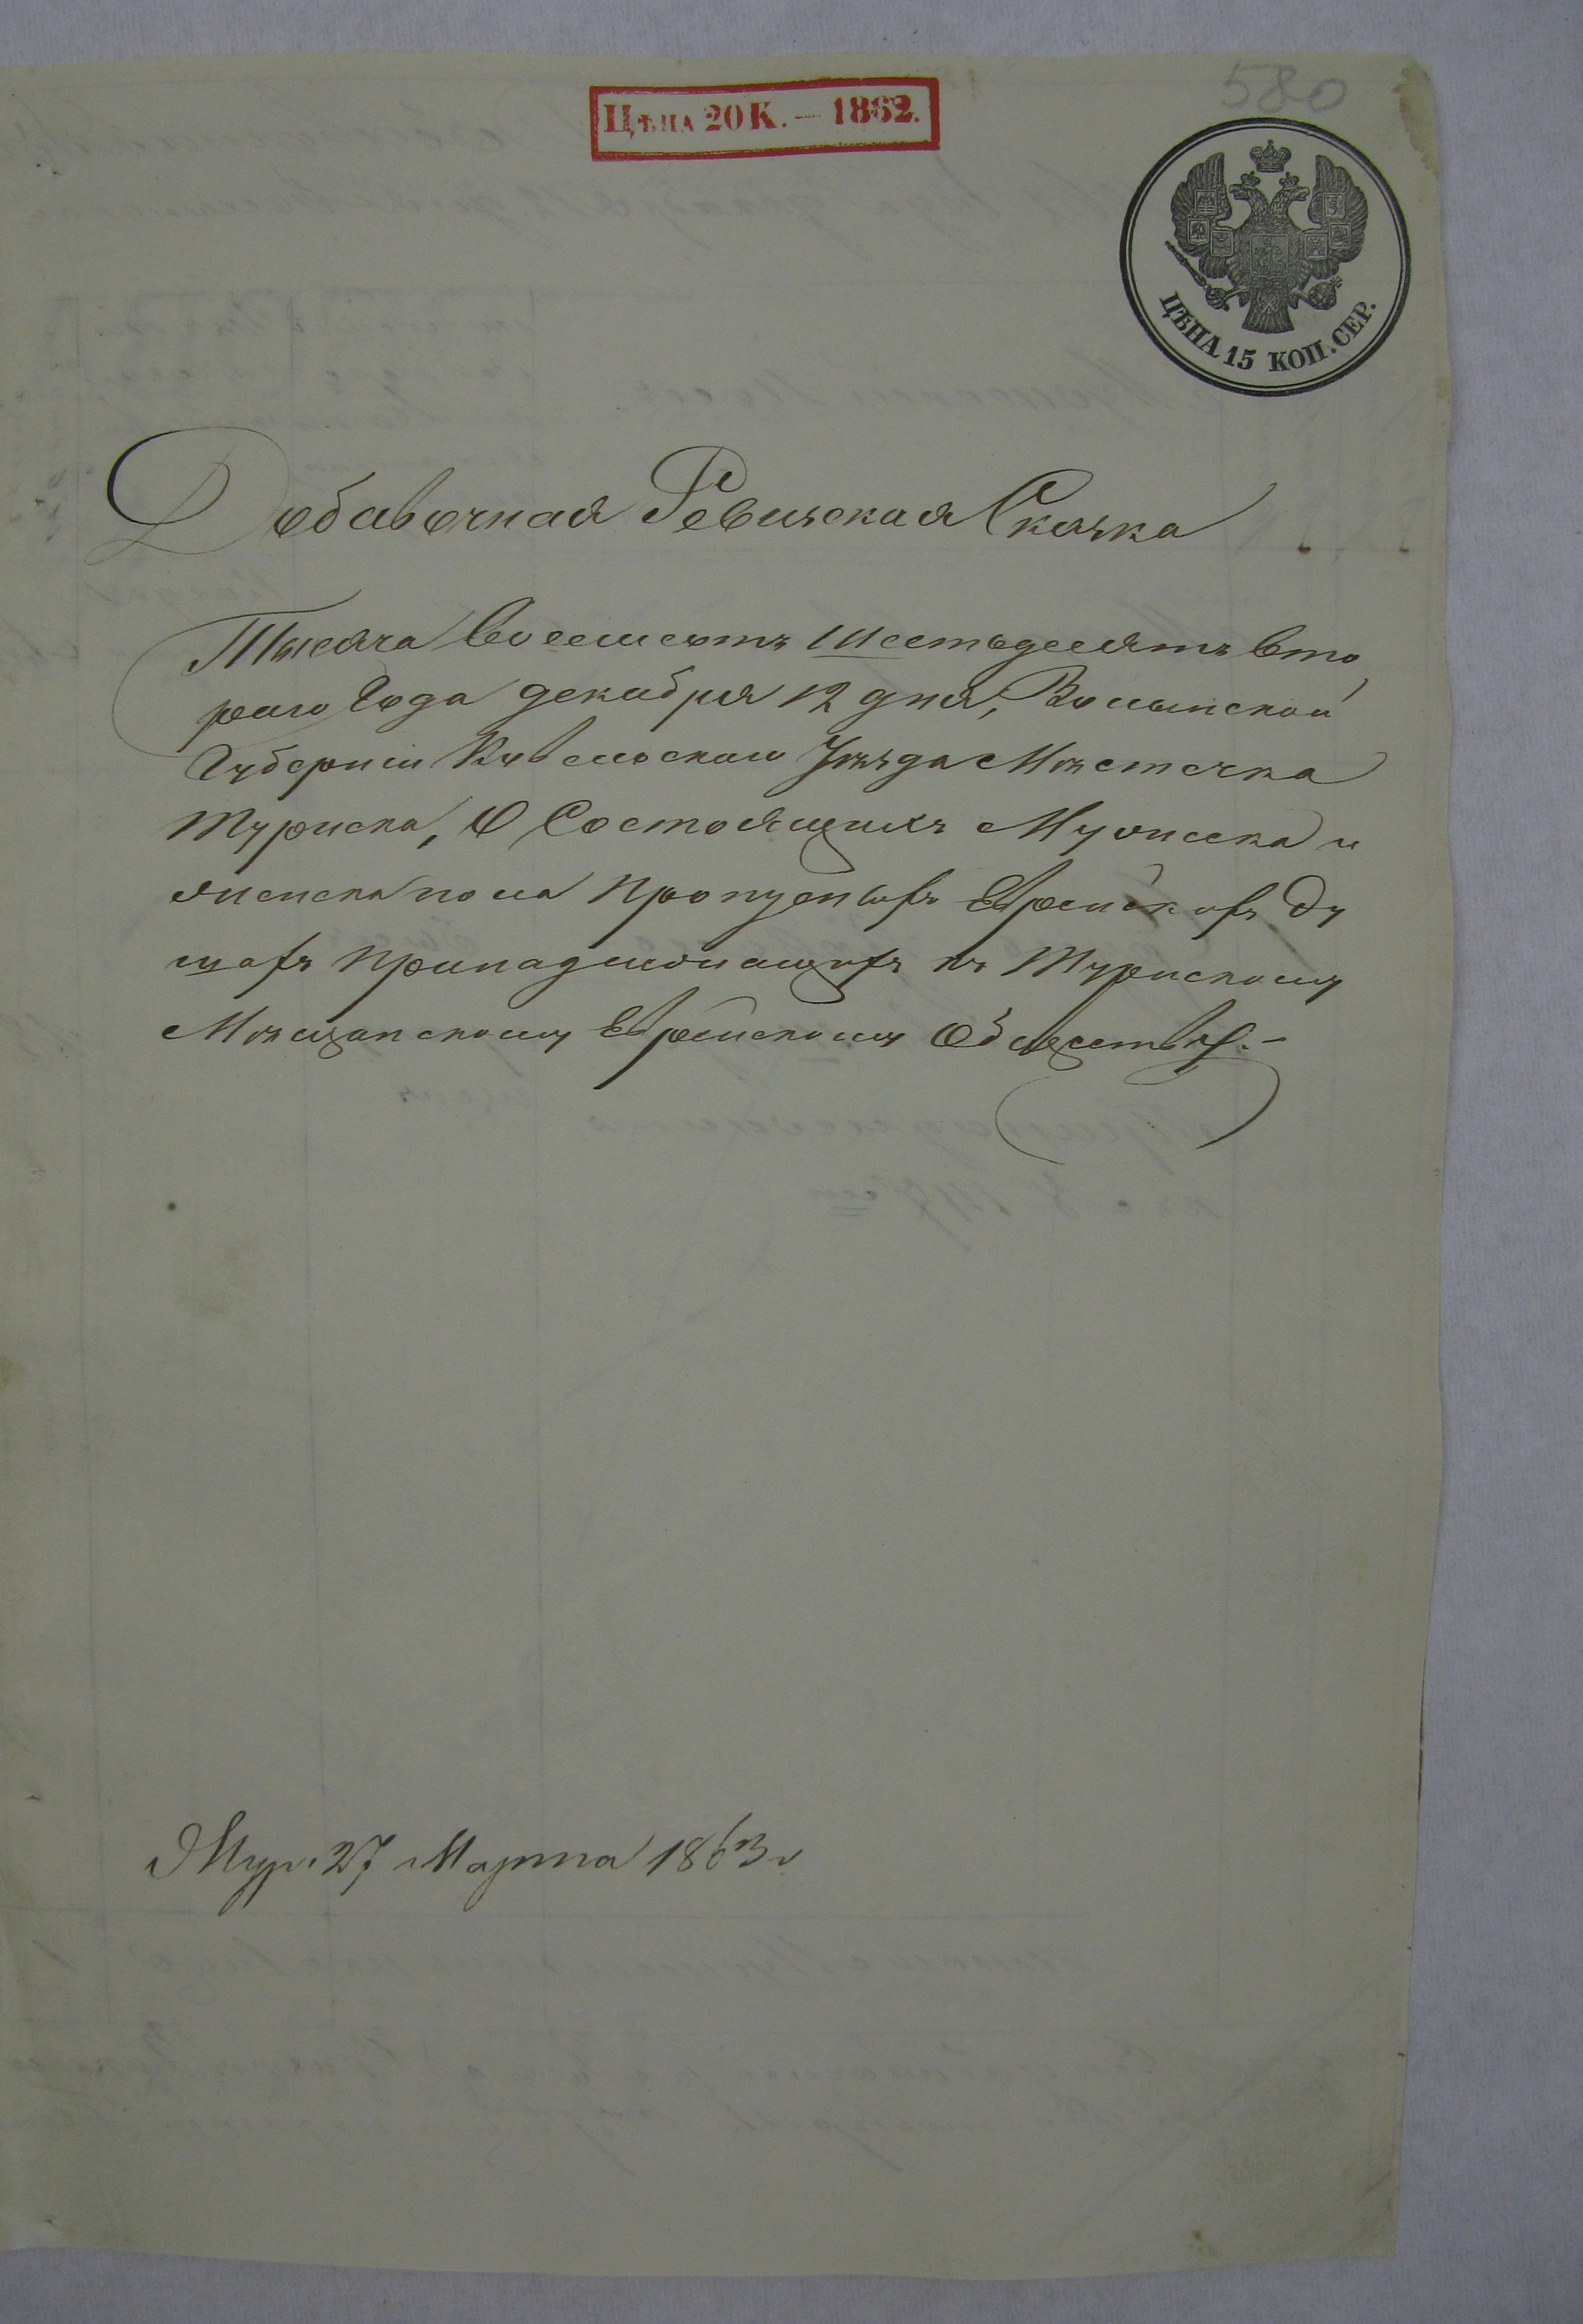 580
ЦѢНА 20 К. — 1862.
ЦѢНА 15 КОП. СЕР.
Добавочная Ревизская Сказка
Тысяча Восемсотъ Шестьдесятъ вто
раго Года декабря 12 дня, Волынской
Губерніи Ковельскаго Уѣзда Мѣстечка
Туриска, О Состоящихъ Мужеска и
женска пола Пропущенныхъ Еврейскихъ Ду
шахъ принадлежащихъ къ Турискому
Мѣщанскому Еврейскому Обществу.-
27 Марта 1863 г